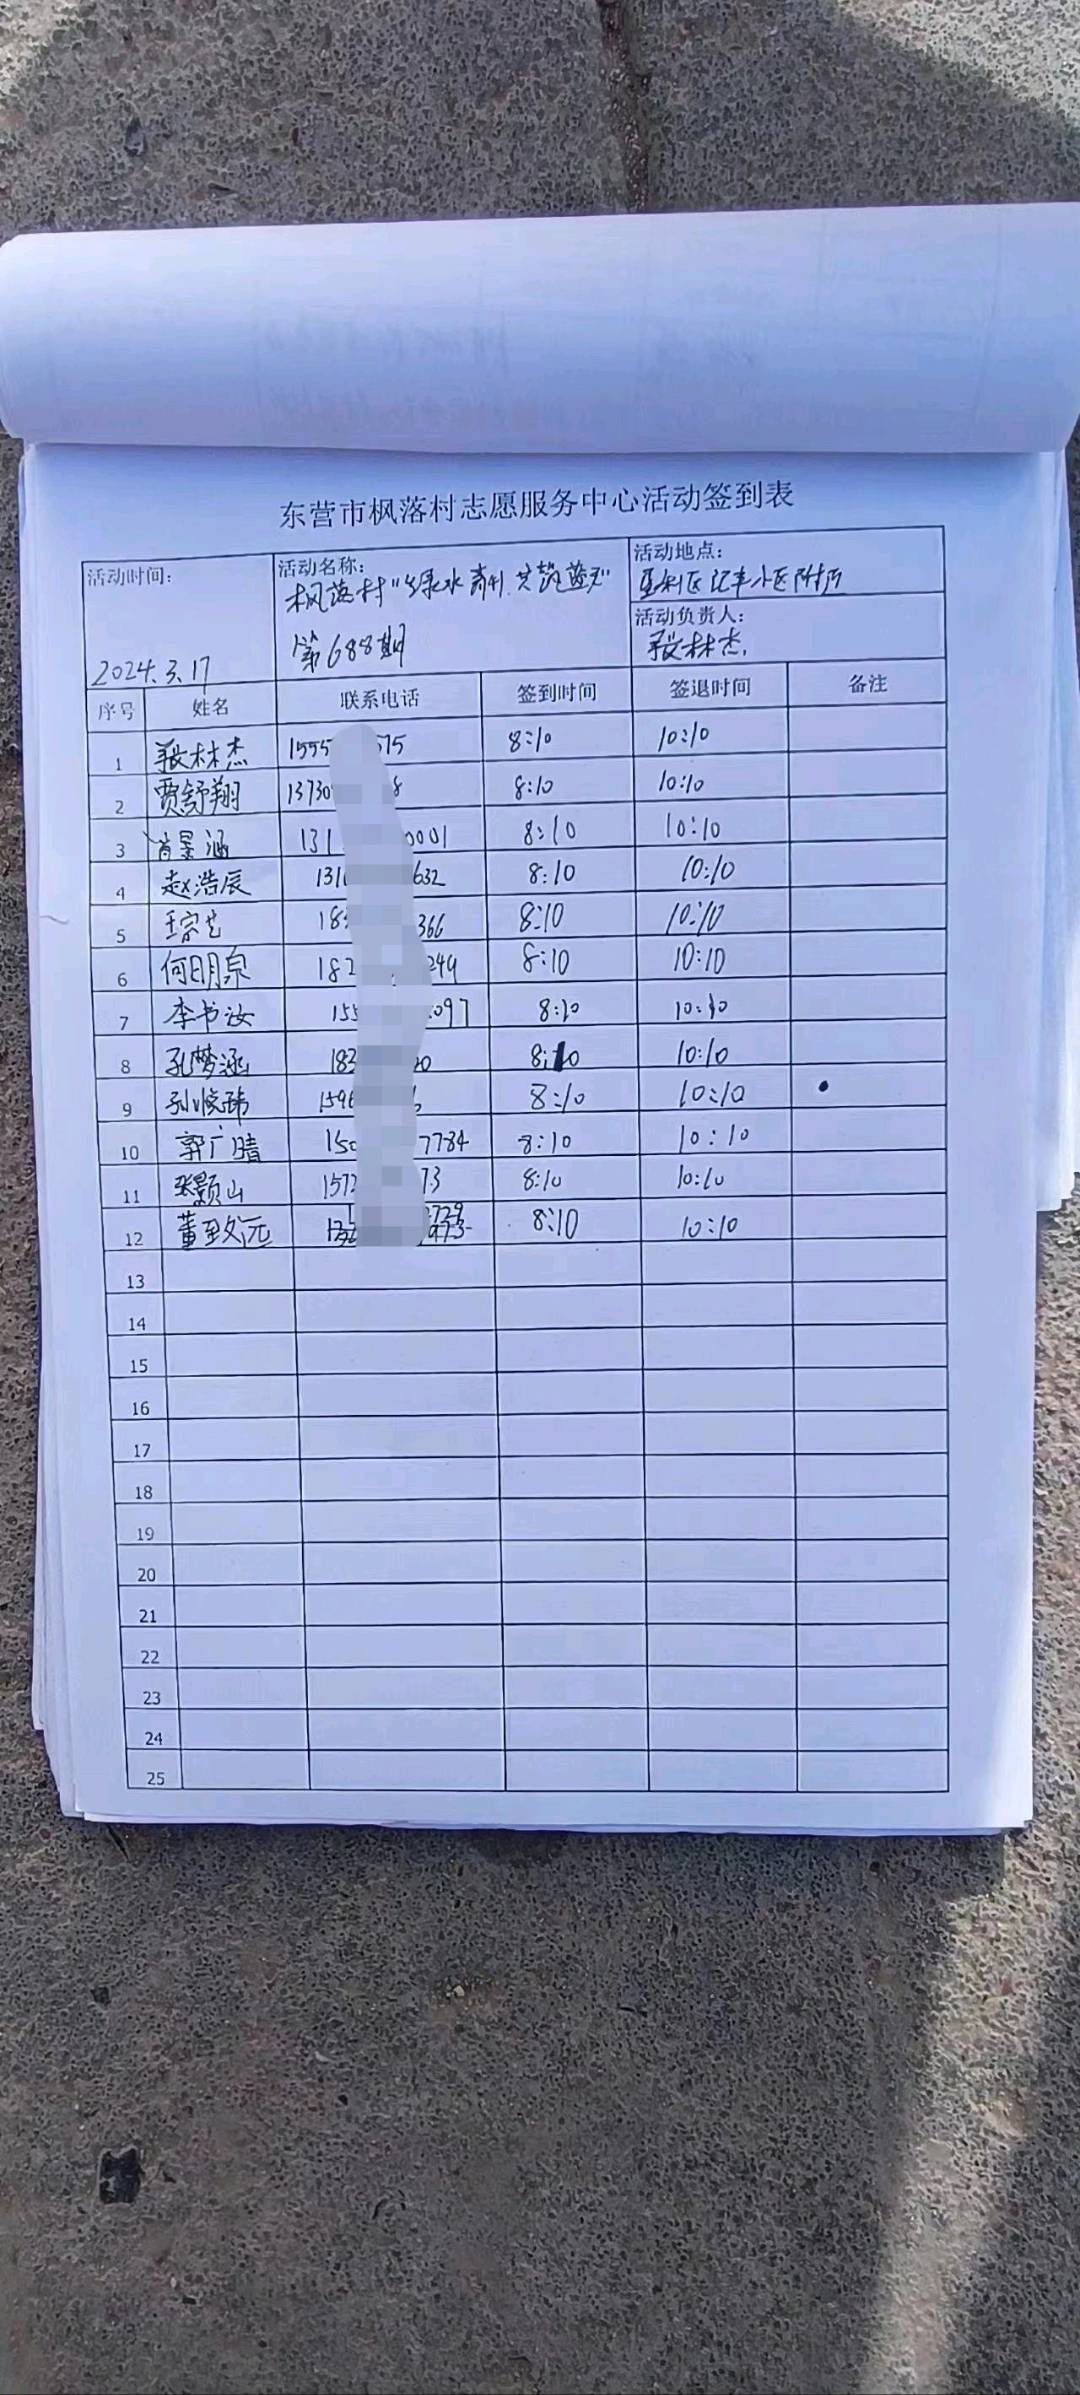 东营市枫落村志愿服务中心活动签到表
活动时间: 2024.3.17
活动名称: 枫落村"绿水 共筑蓝天" 第688期
活动地点: 垦利区 小区附近
活动负责人: 张林杰
序号 姓名 联系电话 签到时间 签退时间 备注
1 张林杰 1555 575 8:10 10:10
2 贾舒翔 1373 8 8:10 10:10
3 肖景涵 131 0001 8:10 10:10
4 赵浩辰 131 632 8:10 10:10
5 王宗艺 18 366 8:10 10:10
6 何明泉 182 244 8:10 10:10
7 李书汝 155 097 8:10 10:10
8 孔梦涵 183 0 8:10 10:10
9 孙晓玮 1596 8:10 10:10
10 郭广晴 150 7784 8:10 10:10
11 张颢山 1572 73 8:10 10:10
12 董致远 8:10 10:10
13
14
15
16
17
18
19
20
21
22
23
24
25